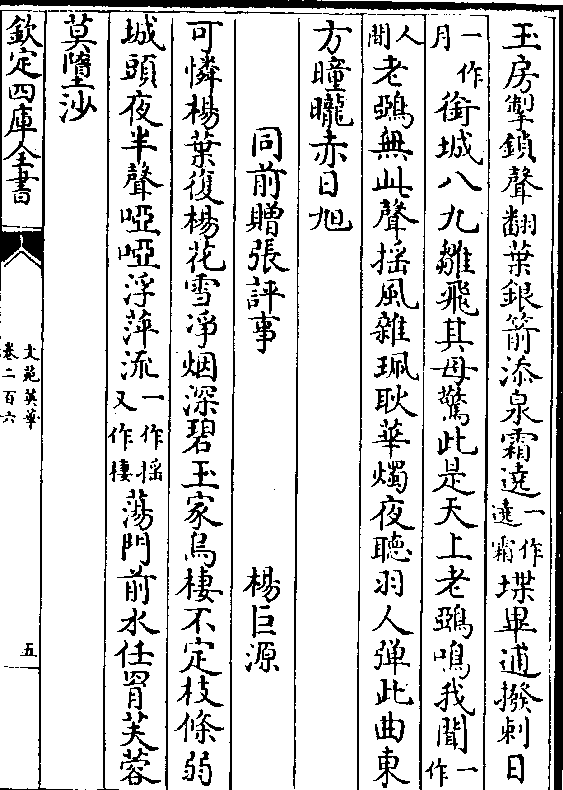 玉房掣鎖聲翻葉銀箭添泉霜遶一作遶霜堞畢逋撥剌日
一作月銜城八九雛飛其母驚此是天上老鵶鳴我聞一作
人間老鵶無此聲搖風雜珮耿華燭夜聽羽人彈此曲東
方曈曨赤日旭
同前贈張評事 楊巨源
可憐楊葉復楊花雪凈烟深碧玉家烏棲不定枝條弱
城頭夜半聲啞啞浮萍流一作搖又作棲蕩門前水任罥芙蓉
莫墮沙
欽定四庫全書
文苑英華
卷二百六
五